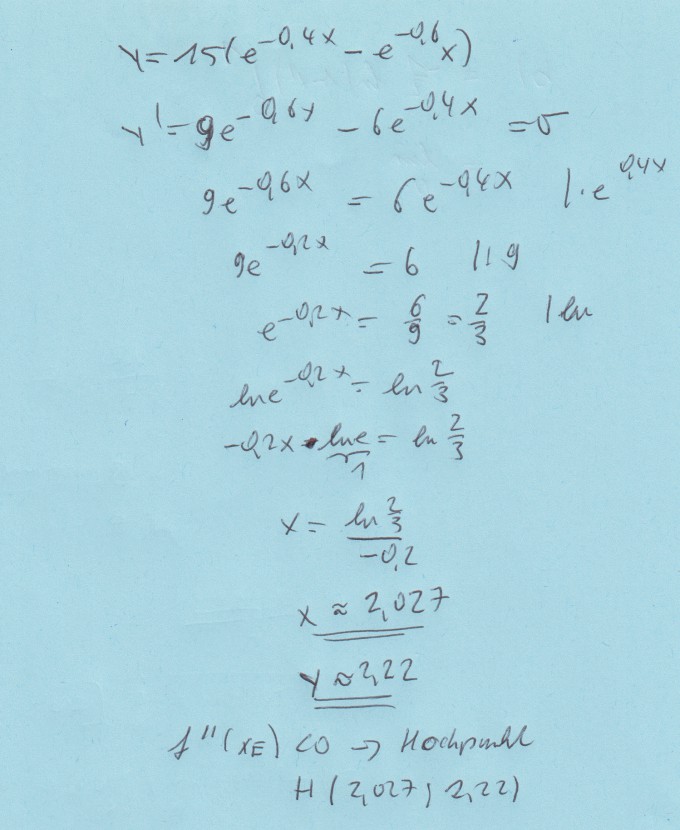 y = 15(e^-0,4x - e^-0,6x)
y' = 9e^-0,6x - 6e^-0,4x = 0
9e^-0,6x = 6e^-0,4x |·e^0,4x
9e^-0,2x = 6 |:9
e^-0,2x = 6/9 = 2/3 |ln
ln e^-0,2x = ln 2/3
-0,2x · ln e = ln 2/3
1
x = ln 2/3 / -0,2
x ≈ 2,027
y ≈ 2,22
f''(xE) <0 → Hochpunkt
H (2,027; 2,22)